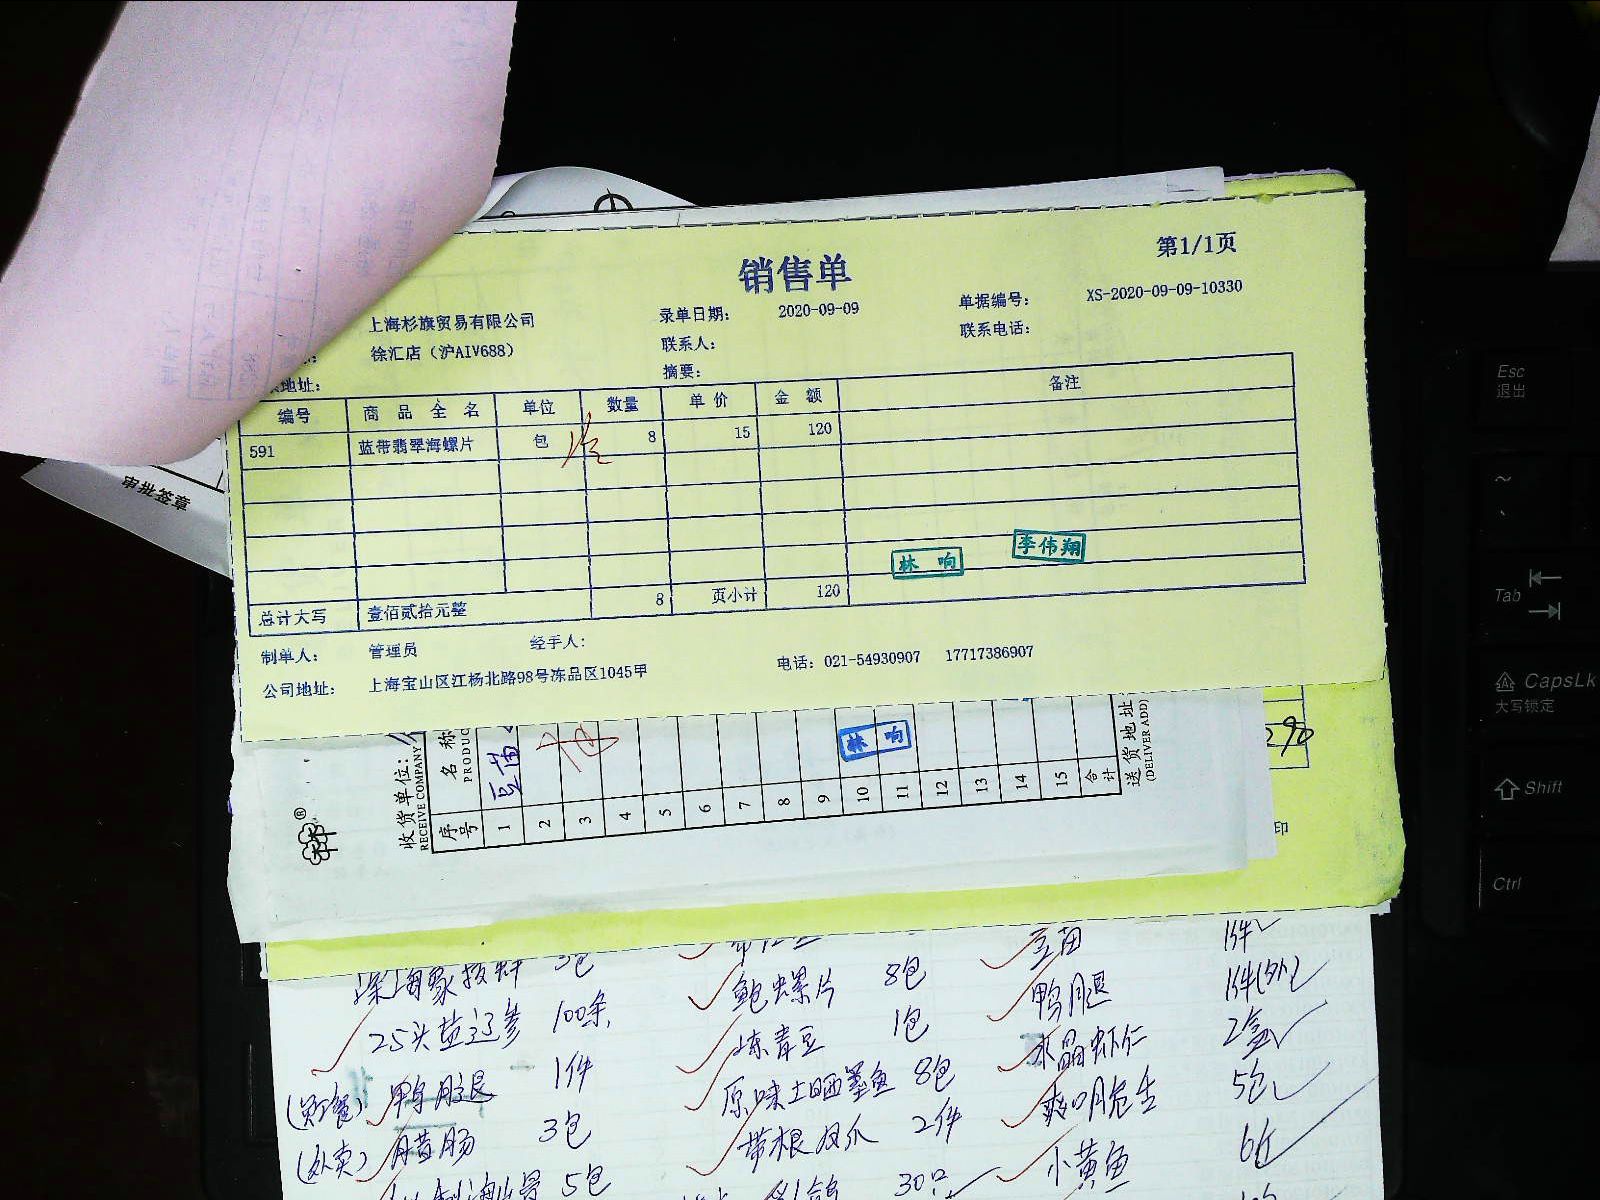 销售单
第1/1页
上海杉旗贸易有限公司 录单日期： 2020-09-09 单据编号： XS-2020-09-09-10330
徐汇店（沪AIV688） 联系人： 联系电话：
地址： 摘要：
编号 商品全名 单位 数量 单价 金额 备注
591 蓝带翡翠海螺片 包 8 15 120
林响 李伟翔
总计大写 壹佰贰拾元整 8 页小计 120
制单人： 管理员 经手人：
公司地址： 上海宝山区江杨北路98号冻品区1045甲 电话：021-54930907 17717386907
审批签章
收货单位：
RECEIVE COMPANY
序号 名称
PRODUC
1 豆苗
2
3
4
5
6
7
8
9
10
11
12
13
14
15
合计
林响
送货地址
(DELIVER ADD)
290
印
豆苗 1件
25头盐辽参 100条 鲍螺片 8包 鸭腿 1件(外)
鸭腿 1件 冻青豆 1包 水晶虾仁 2盒
(外卖) 腊肠 3包 原味土晒墨鱼 8包 5包
5包 带根双爪 2件 小黄鱼
30只
Esc
退出
~
Tab
CapsLk
大写锁定
Shift
Ctrl